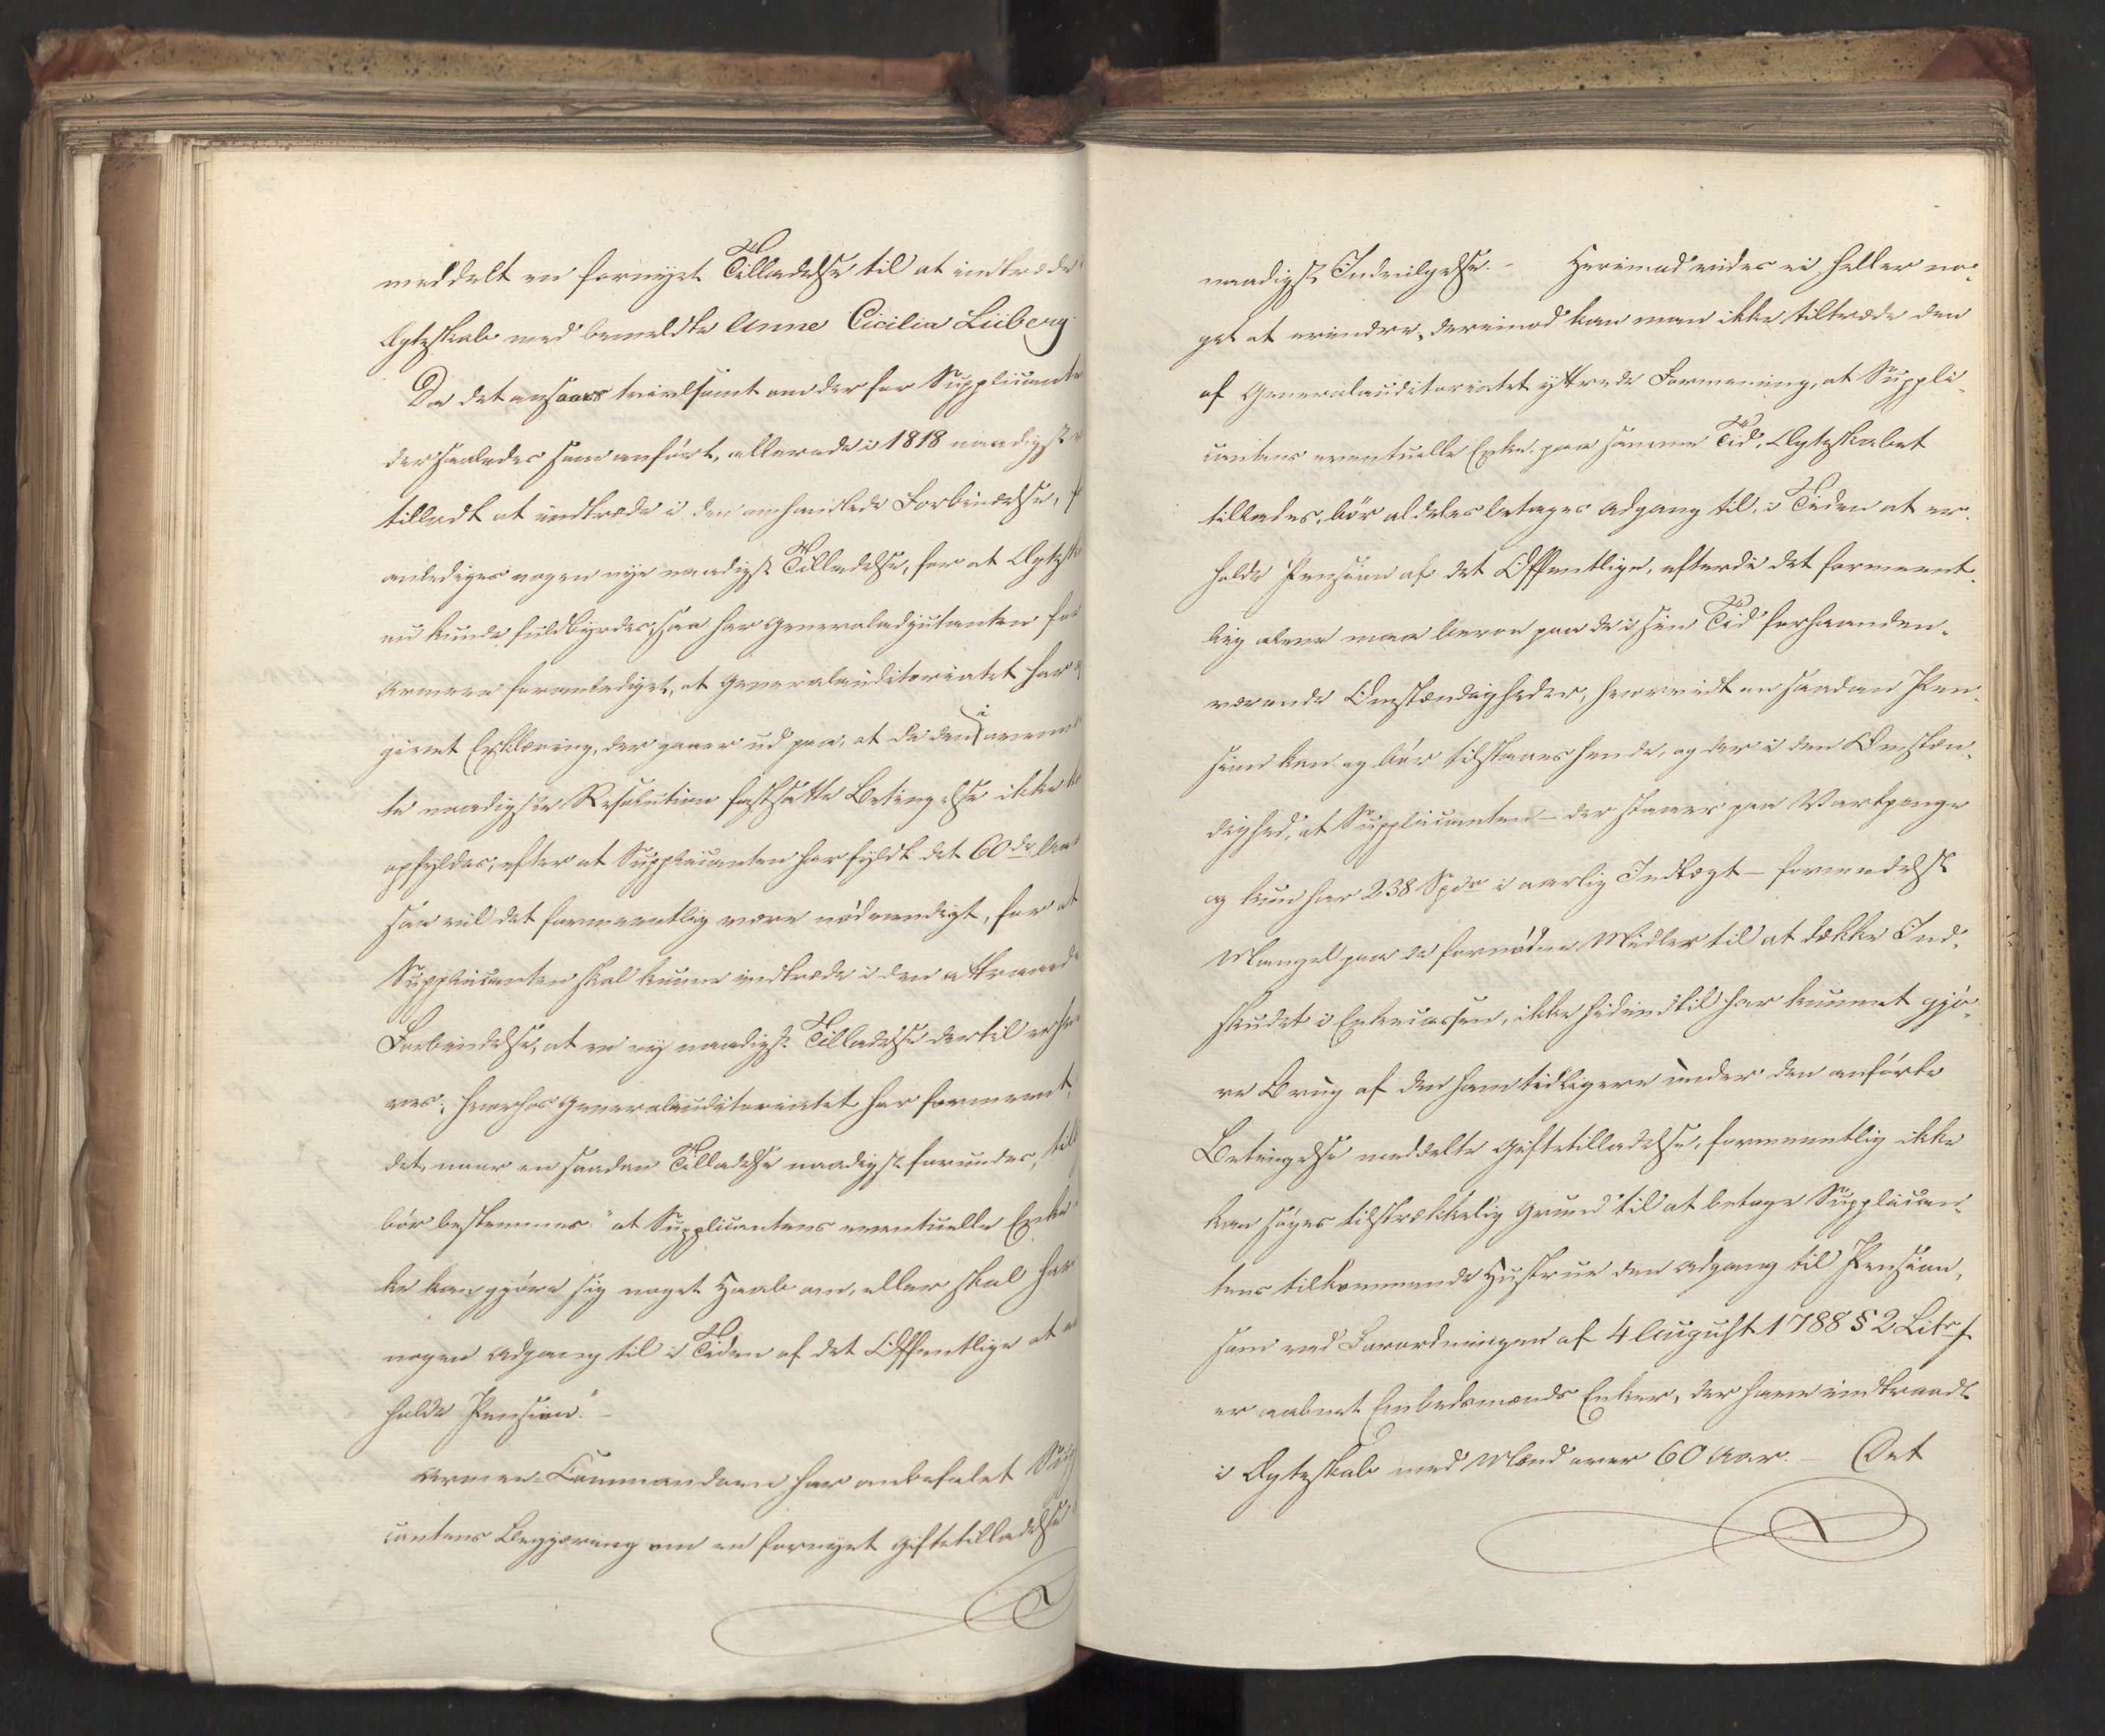 meddelt en fornyet Tilladelse til at indtræde i
Ægteskab med bemeldte Anne Cicilia Lüberg.
Da det ansaaes tvivlsomt om der for Supplicanten
der saaledes som anført, allerede i 1818 naadigst er
tilladt at indtræde i den omhandlede Forbindelse,
anlediges nogen nye naadigst Tilladelse, for at Ægtesk
nu kunde fuldbyrdes, saa har Generaladjutanten for
Armeen foranlediget, at Generalauditoriatet har
givet Erklæring, der gaaer ud paa, at da den i ovenmeld
te naadigste Resolution fastsatte Betingelse ikke
opfyldes, efter at Supplicanten har fyldt det 60de Aar
saa vil det formeentlig være nødvendigt, for at
Supplicanten skal kunne indtræde i den attraaede
Forbindelse, at en ny naadigst Tilladelse dertil erhver
ves; hvorhos Generalauditoriatet har formeent,
det, naar en saadan Tilladelse naadigst forundes, till
bør bestemmes: "at Supplicantens eventuelle Enke ik
ke kan gjøre sig noget Haab om, eller skal have
nogen Adgang til i Tiden af det Offentlige at er
holde Pension." –
Armee-Commandoen har anbefalet Suppli
cantens Begjæring om en fornyet Giftetilladelse
naadigst Indvilgelse. – Herimod vides ei heller no-
get at erindre, derimod kan man ikke tiltræde den
af Generalauditoriatet yttrede Formening, at Suppli-
cantens eventuelle Enke, paa samme Tid, Ægteskabet
tillades, bør aldeles betages Adgang til, i Tiden at er-
holde Pension af det Offentlige, efterdi det formeent-
lig alene maa beroe paa de i sin Tid forhaanden-
værende Omstændigheder, hvorvidt en saadan Pen-
sion kan og bør tilstaaes hende, og der i den Omstæn-
dighed, at Supplicanten – der staaer paa Vartpenge
og kun har 238 Spdr i aarlig Indtægt – formedelst
Mangel paa de fornødne Midler til at dække Ind-
skudet i Enkecassen, ikke hidindtil har kunnet gjø-
re Brug af den ham tidligere under den anførte
Betingelse meddelte Giftetilladelse, formeentlig ikke
kan søges tilstrækkelig Grund til at betage Supplican-
tens tilkommende Hustrue den Adgang til Pension,
som ved Forordningen af 4 August 1788 § 2 Litr f.
er aabnet Embedsmænds Enker, der have indtraadt
i Ægteskab med Mænd over 60 Aar. – Det